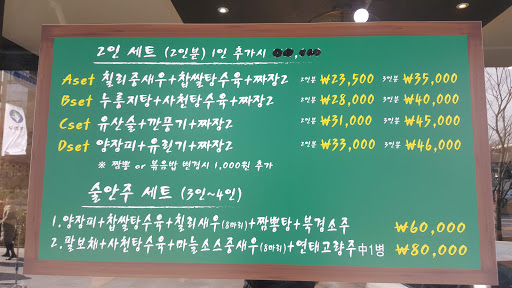 2인 세트 (2인분) 1인 추가시
Aset 칠리중새우+찹쌀탕수육+짜장2 2인분 ₩23,500 3인분 ₩35,000
Bset 누룽지탕+사천탕수육+짜장2 2인분 ₩28,000 3인분 ₩40,000
Cset 유산슬+깐풍기+짜장2 2인분 ₩31,000 3인분 ₩45,000
Dset 양장피+유린기+짜장2 2인분 ₩33,000 3인분 ₩46,000
※ 짬뽕 or 볶음밥 변경시 1,000원 추가
술안주 세트 (3인~4인)
1.양장피+찹쌀탕수육+칠리새우(8마리)+짬뽕탕+북경소주 ₩60,000
2.팔보채+사천탕수육+마늘소스중새우(8마리)+연태고량주中1병 ₩80,000